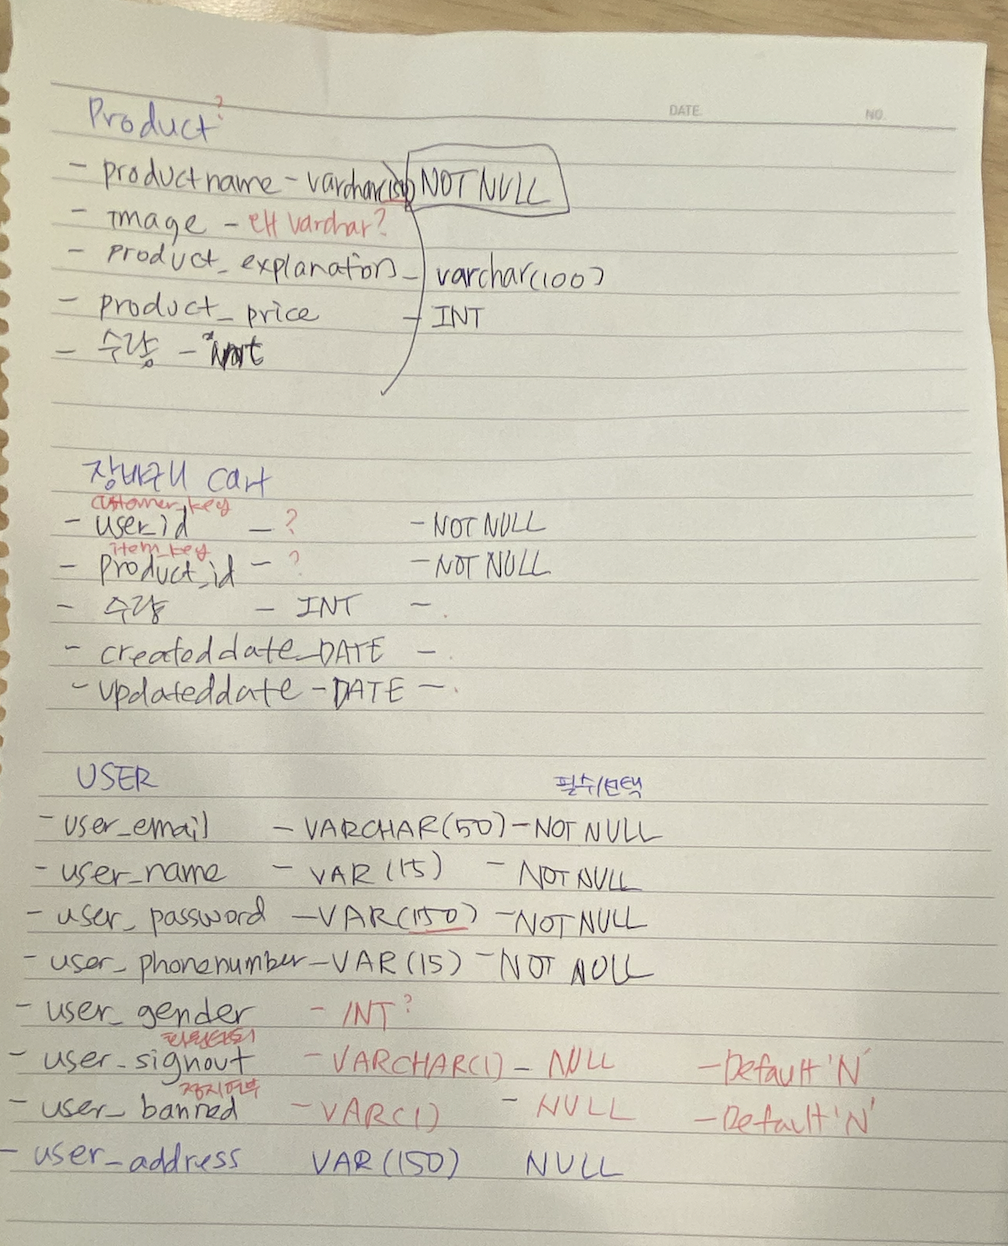 DATE. NO.
Product?
- productname - varchar(50) NOT NULL
- Image - varchar?
- Product_explanation - varchar(100)
- product_price - INT
- 수량 - int
장바구니 cart
customer_key
- user_id - ? - NOT NULL
item_key
- product_id - ? - NOT NULL
- 수량 - INT - .
- createddate - DATE - .
- updateddate - DATE - .
USER 필수/선택
- user_email - VARCHAR(50) - NOT NULL
- user_name - VAR(15) - NOT NULL
- user_password - VAR(150) - NOT NULL
- user_phonenumber - VAR(15) - NOT NULL
- user_gender - INT?
- user_signout - VARCHAR(1) - NULL - Default 'N'
정지여부
- user_banned - VAR(1) - NULL - Default 'N'
- user_address VAR(150) NULL